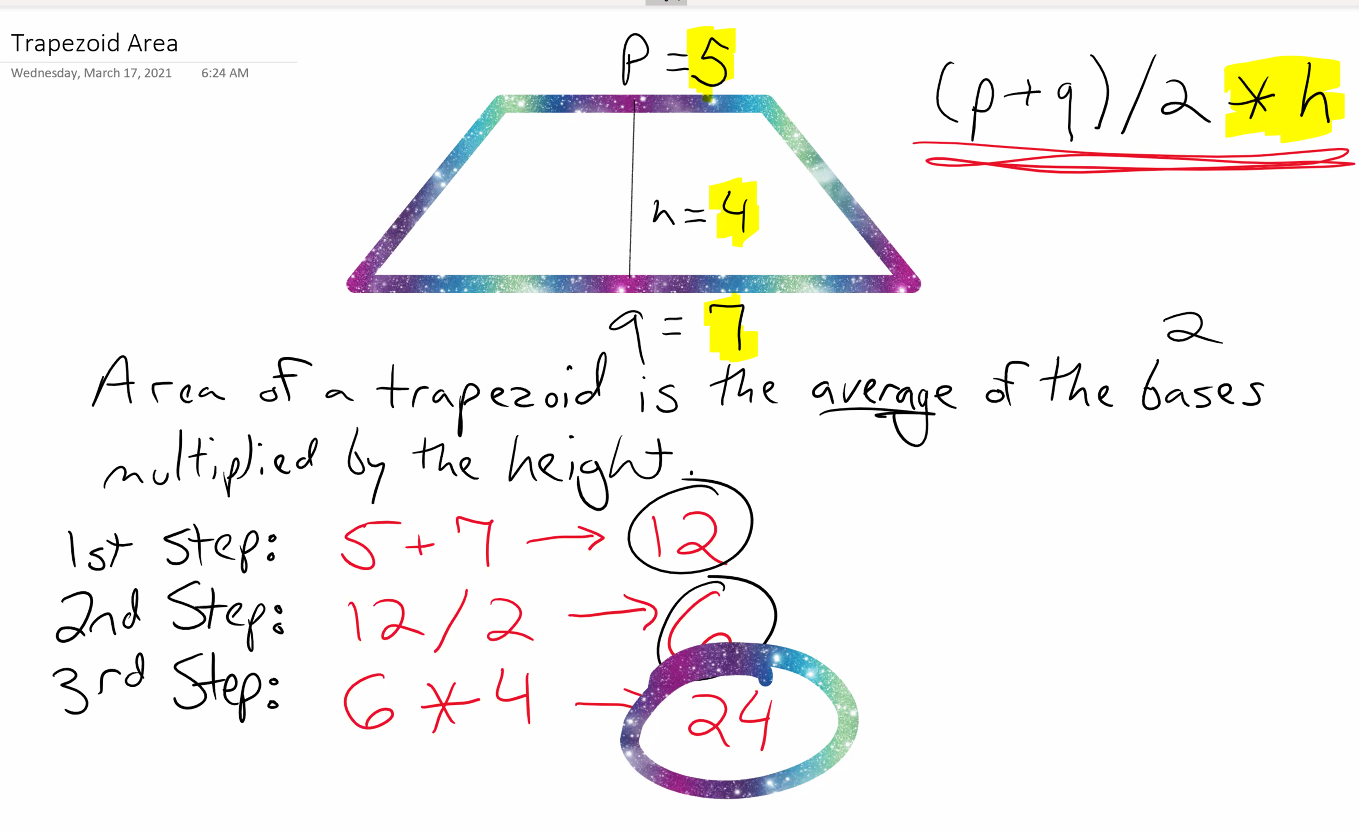 Trapezoid Area
Wednesday, March 17, 2021 6:24 AM
P = 5
(p+q)/2 * h
h = 4
q = 7
2
Area of a trapezoid is the average of the bases
multiplied by the height.
1st Step: 5+7 → 12
2nd Step: 12/2 → 6
3rd Step: 6 * 4 → 24